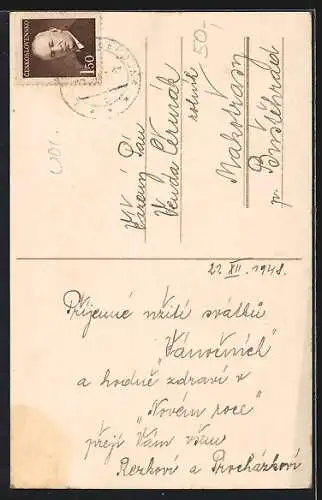 ČESKOSLOVENSKO
1.50
50,-
Vážený Pán
Venda Čermák
rolník
Makotřasy
p. Buštěhrad
22. XII. 1948.
Příjemné užití svátků
"Vánočních"
a hodně zdraví v
"Novém roce"
přejí Vám všem
Rezkovi a Procházkovi